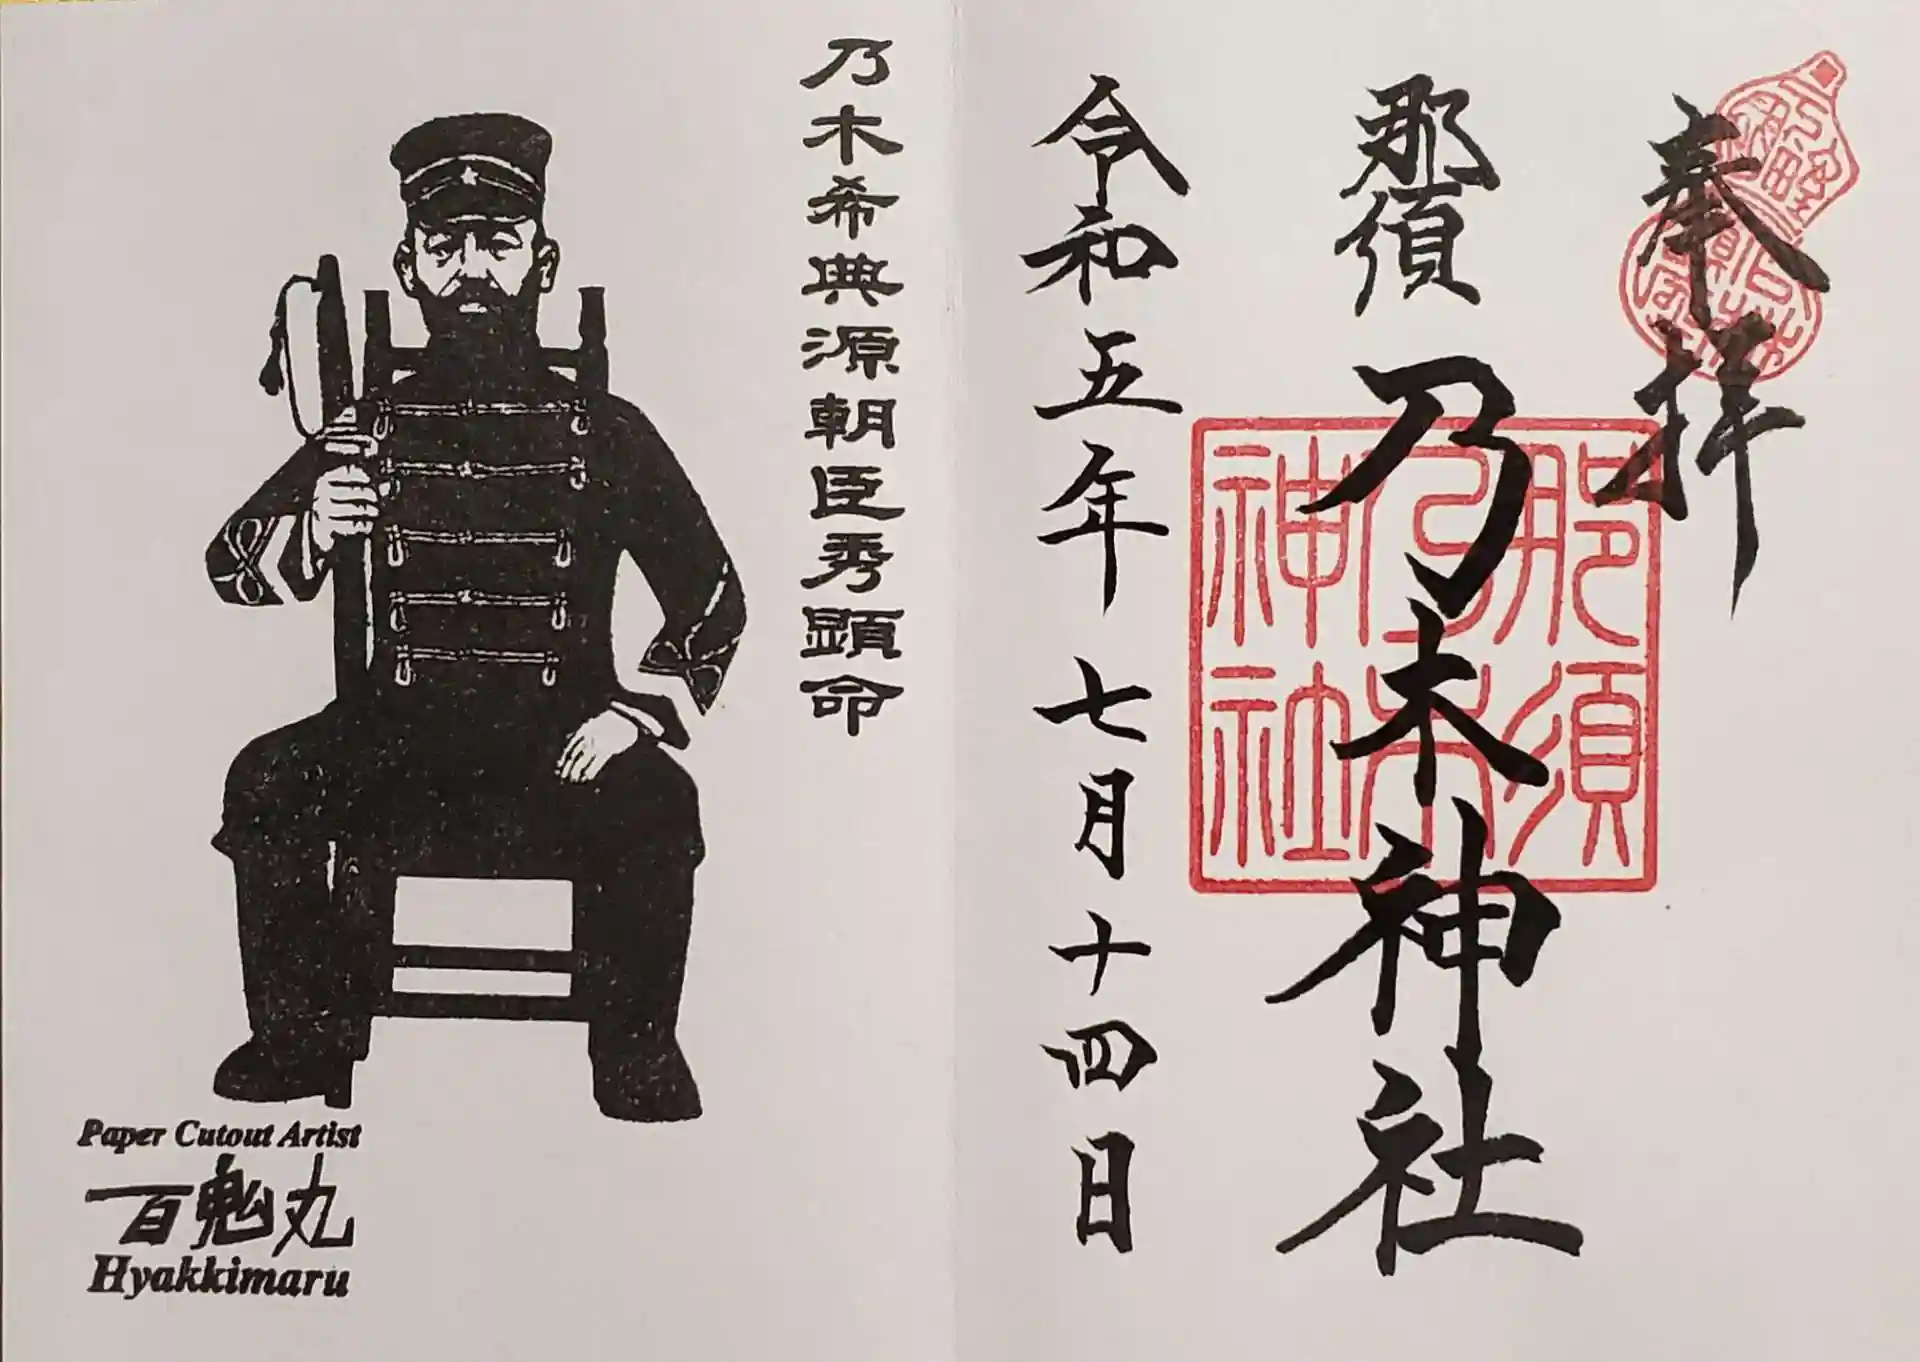 奉拝
那須乃木神社
那須
乃木
神社
令和五年七月十四日
乃木希典源朝臣秀顕命
Paper Cutout Artist
百鬼丸
Hyakkimaru